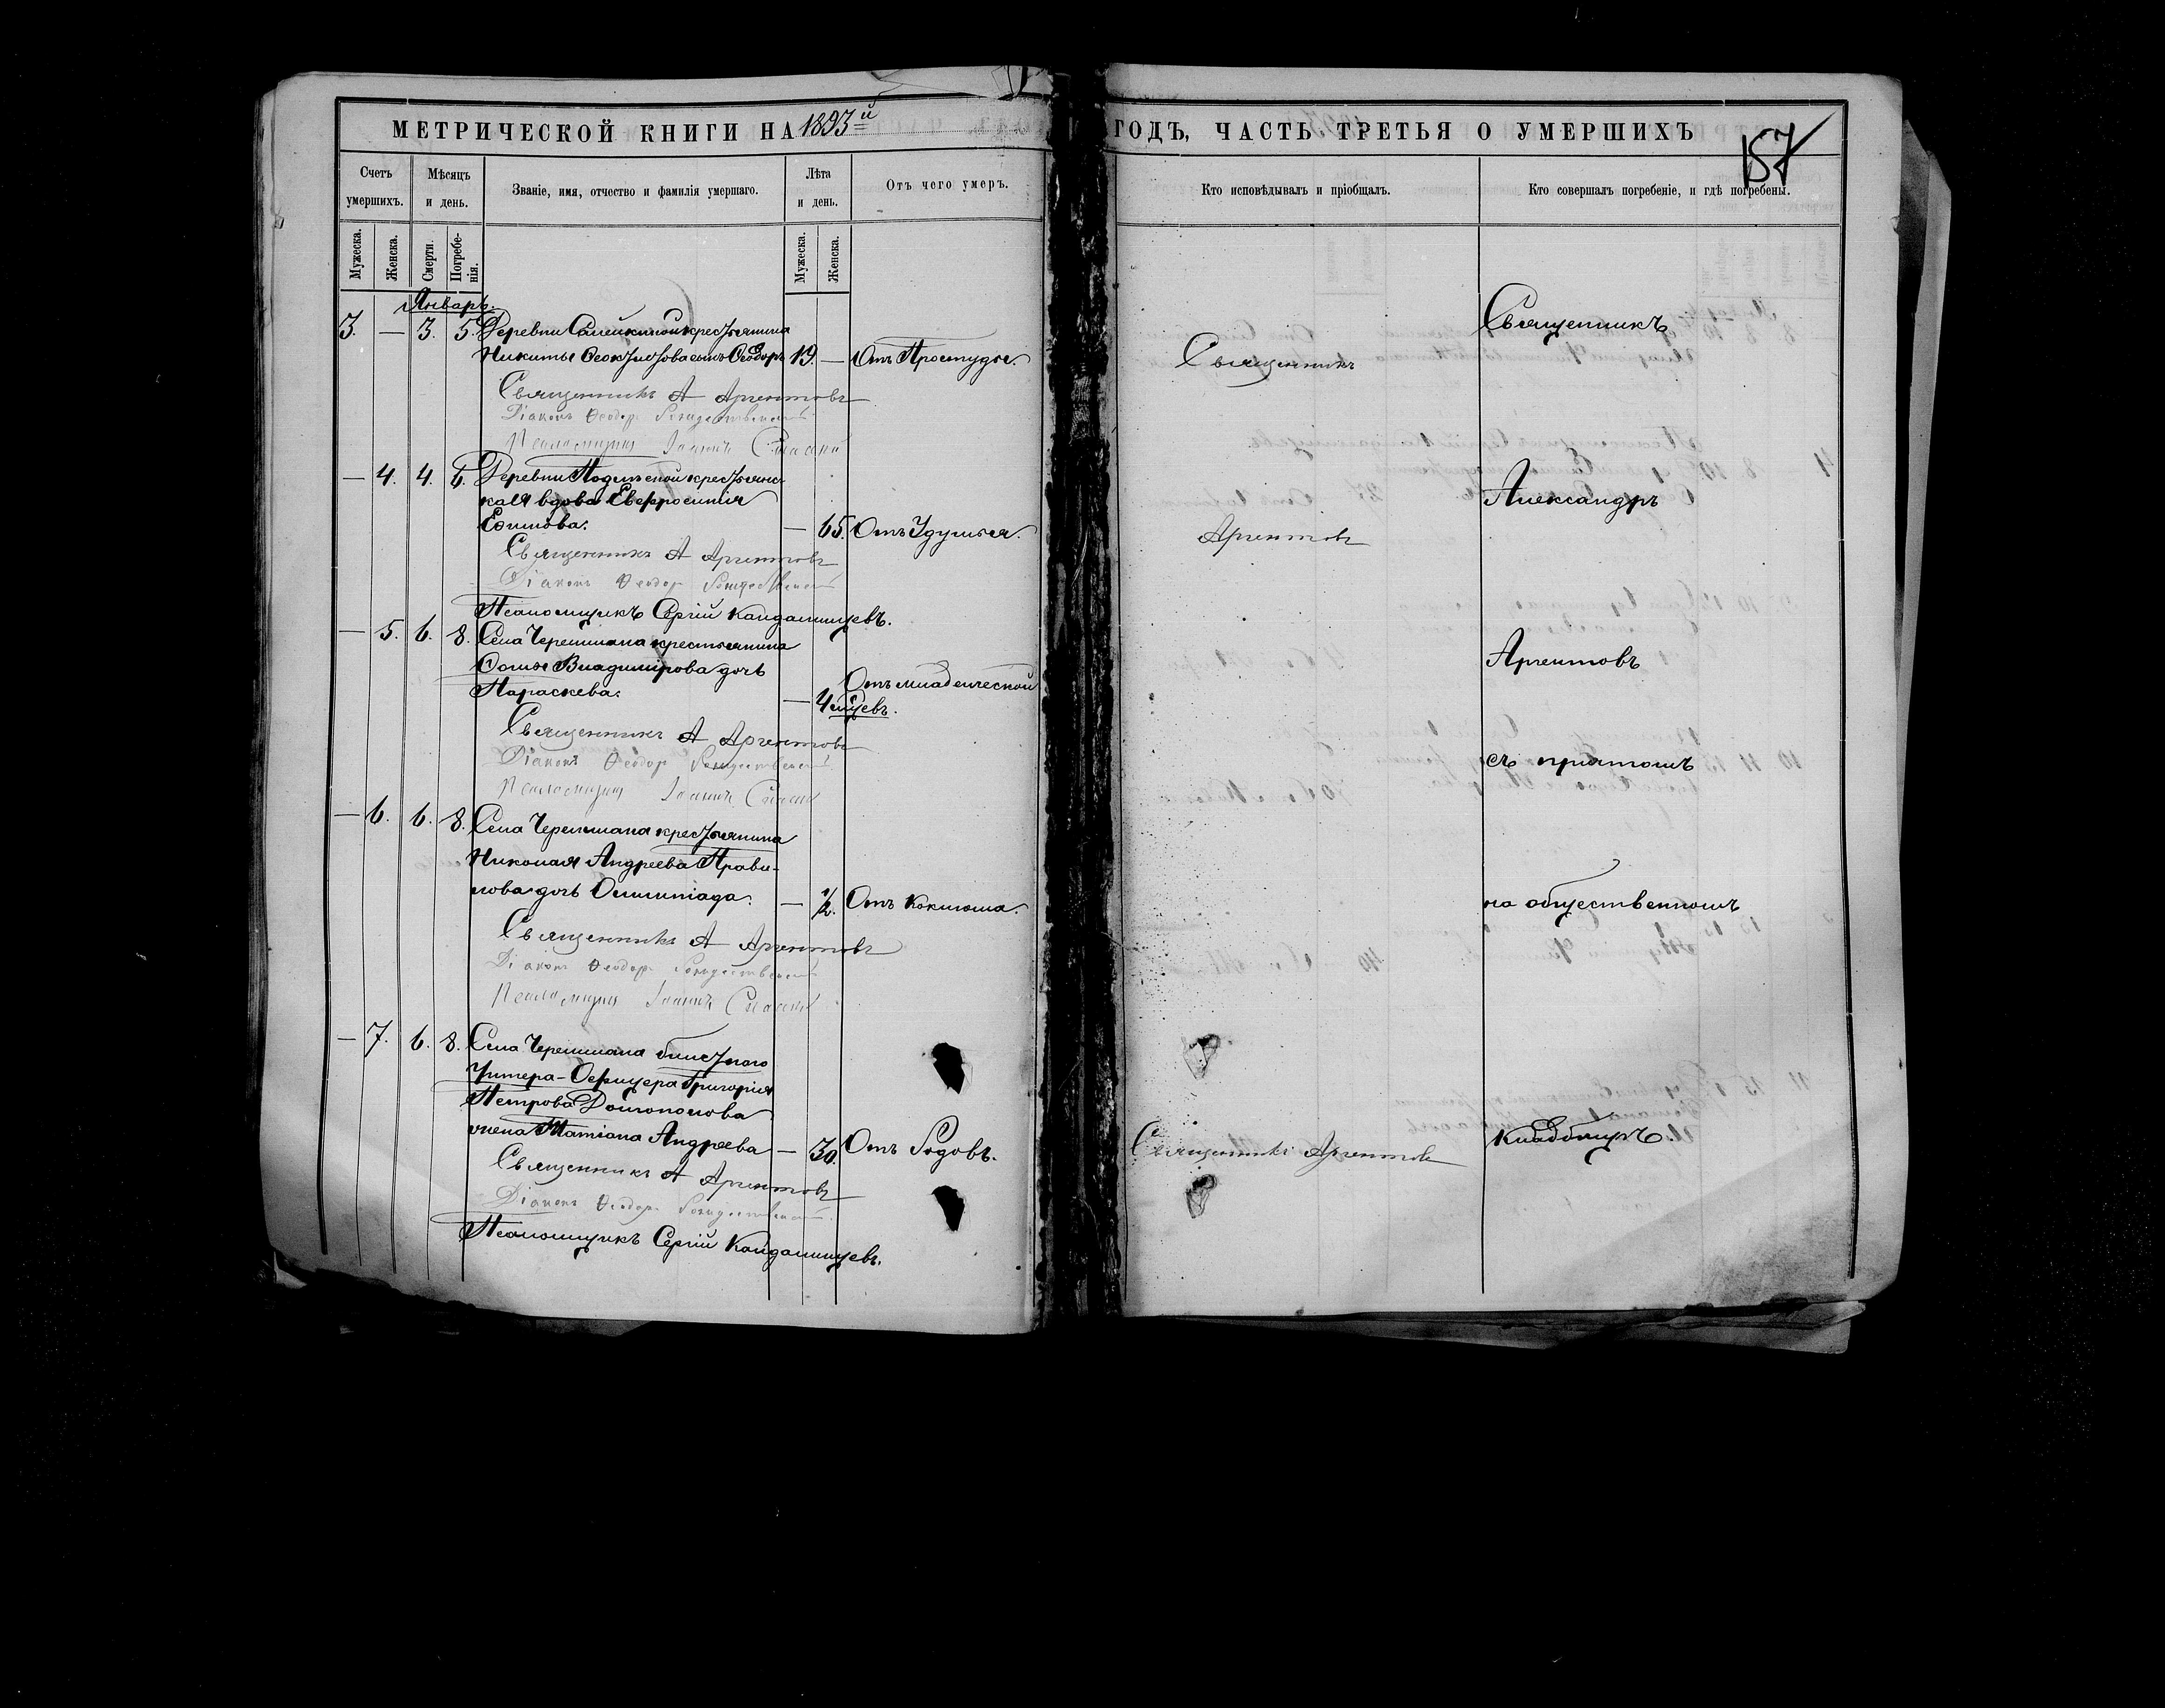 МЕТРИЧЕСКОЙ КНИГИ НА 1893й ГОДЪ, ЧАСТЬ ТРЕТЬЯ О УМЕРШИХЪ
157
Счетъ умершихъ.
Мѣсяцъ и день.
Званіе, имя, отчество и фамилія умершаго.
Лѣта и день.
Отъ чего умеръ.
Кто исповѣдывалъ и пріобщалъ.
Кто совершалъ погребеніе, и гдѣ погребены.
Мужеска.
Женска.
Смерти.
Погребенія.
Мужеска.
Женска.
Январь.
3. — 3. 5. Деревни крестьянина
Никиты Ѳеоктистова сынъ Ѳеодоръ 19. — Отъ Простуды.
Священникъ А Аргентовъ
Діаконъ Ѳеодоръ Рождественскій
Псаломщикъ Іоаннъ Спасскій
— 4. 4. 6. Деревни крестьянс-
кая вдова Евфросинія
Ефимова. — 65. Отъ Удушья.
Священникъ А Аргентовъ
Діаконъ Ѳеодоръ Рождественскій
Псаломщикъ Сергій Кандалинцевъ.
— 5. 6. 8. Села Черемшана крестьянина
Ѳомы Владимірова дочь
Параскева. — 4 мѣсяцевъ. Отъ младенческой
Священникъ А Аргентовъ
Діаконъ Ѳеодоръ Рождественскій
Псаломщикъ Іоаннъ Спасскій
— 6. 6. 8. Села Черемшана крестьянина
Николая Андреева Прави-
лова дочь Олимпіада. — 1/2. Отъ Коклюша.
Священникъ А Аргентовъ
Діаконъ Ѳеодоръ Рождественскій
Псаломщикъ Іоаннъ Спасскій
— 7. 6. 8. Села Черемшана билетнаго
Унтеръ-Офицера Григорія
Петрова Долгополова
жена Татіана Андреева — 30. Отъ Родовъ.
Священникъ А Аргентовъ
Діаконъ Ѳеодоръ Рождественскій
Псаломщикъ Сергій Кандалинцевъ.
Священникъ
Аргентовъ
Священникъ Аргентовъ
Священникъ
Александръ
Аргентовъ
съ причтомъ
на общественномъ
кладбищѣ.